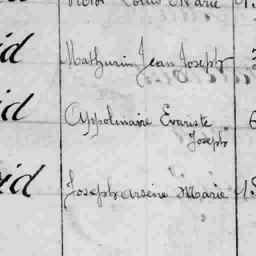 Louis Marie
id Mathurin Jean Joseph
id Appolinaire Evariste
Joseph
id Joseph arsène Marie